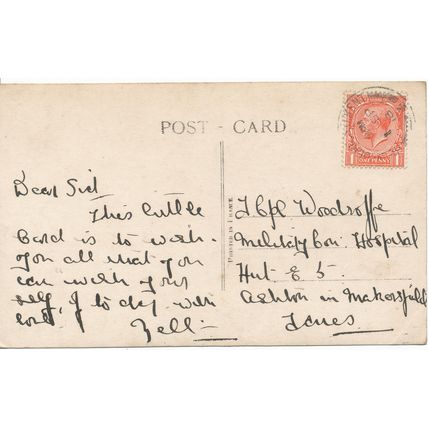 POST - CARD
Dear Sid
This little
Card is to wish
you all that you
can wish your
self, & to day with
love,
Nell
PRINTED IN FRANCE
L/Cpl Woodroffe
Military Con. Hospital
Hut E 5.
Ashton in Makersfield
Lancs
ONE PENNY
1 1